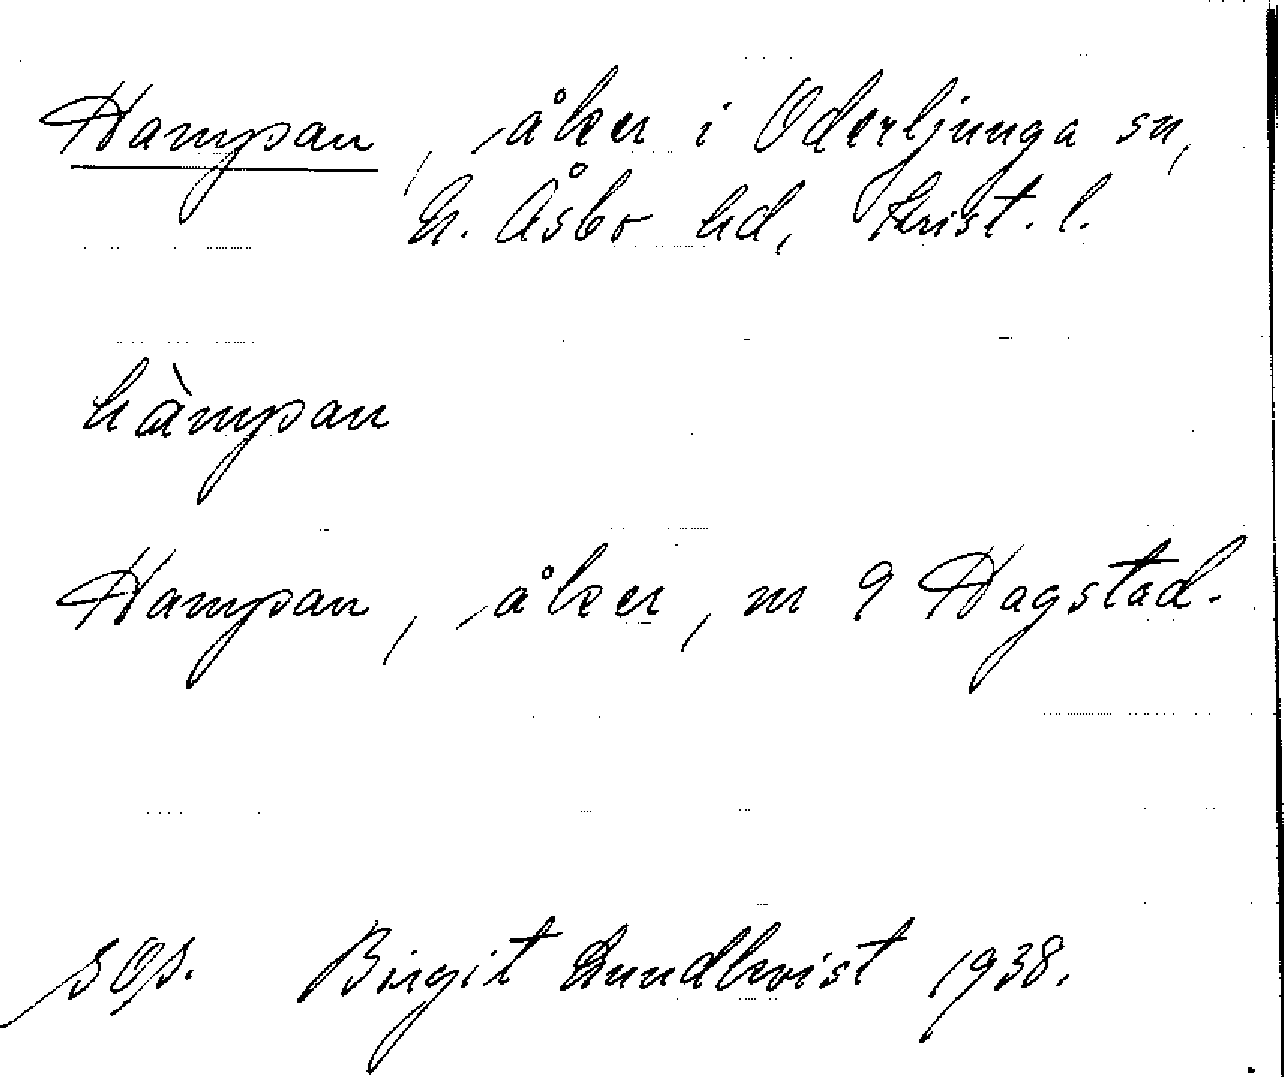 Hampan, åker i Oderljunga sn,
N. Åsbo hd, Krist. l.
hàmpan
Hampan, åker, m 9 Hagstad.
Birgit Lundkvist 1938.